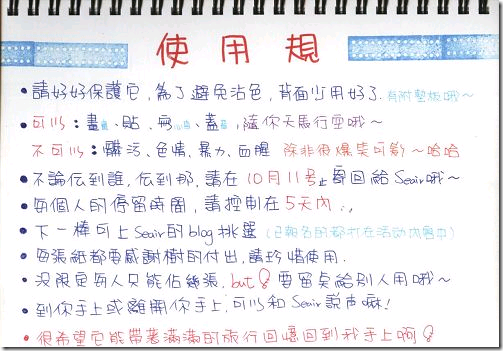 使用規
• 請好好保護它,為了避免沾色,背面少用好了.有附墊板哦~
• 可以:畫畫、貼、寫心得、蓋章,隨你天馬行空哦~
不可以:髒污、色情、暴力、血腥 除非很爆笑可愛~哈哈
• 不論在到誰,在到那,請在10月11号止寄回給Seair哦~
• 每個人的停留時間,請控制在5天內..
• 下一棒可上Seair的blog挑選(已報名的都打在活動內容中)
• 每張紙都要感謝樹的付出,請珍惜使用.
• 沒限定每人只能佔幾張.but 要留點給別人用哦~
• 到你手上或離開你手上,可以和Seair說声嘛!
• 很希望它能帶著滿滿的旅行回憶回到我手上啊